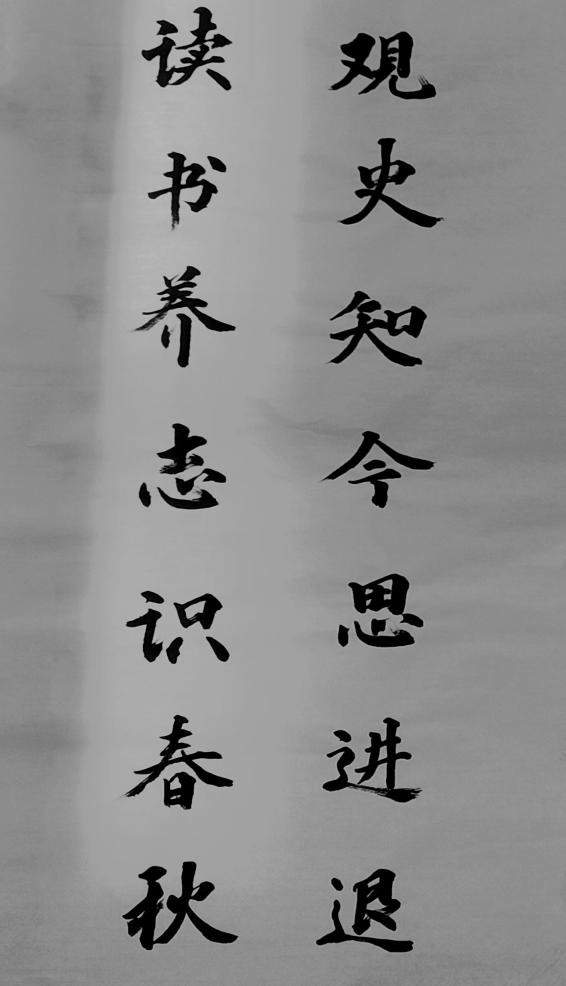 观史知今思进退
读书养志识春秋